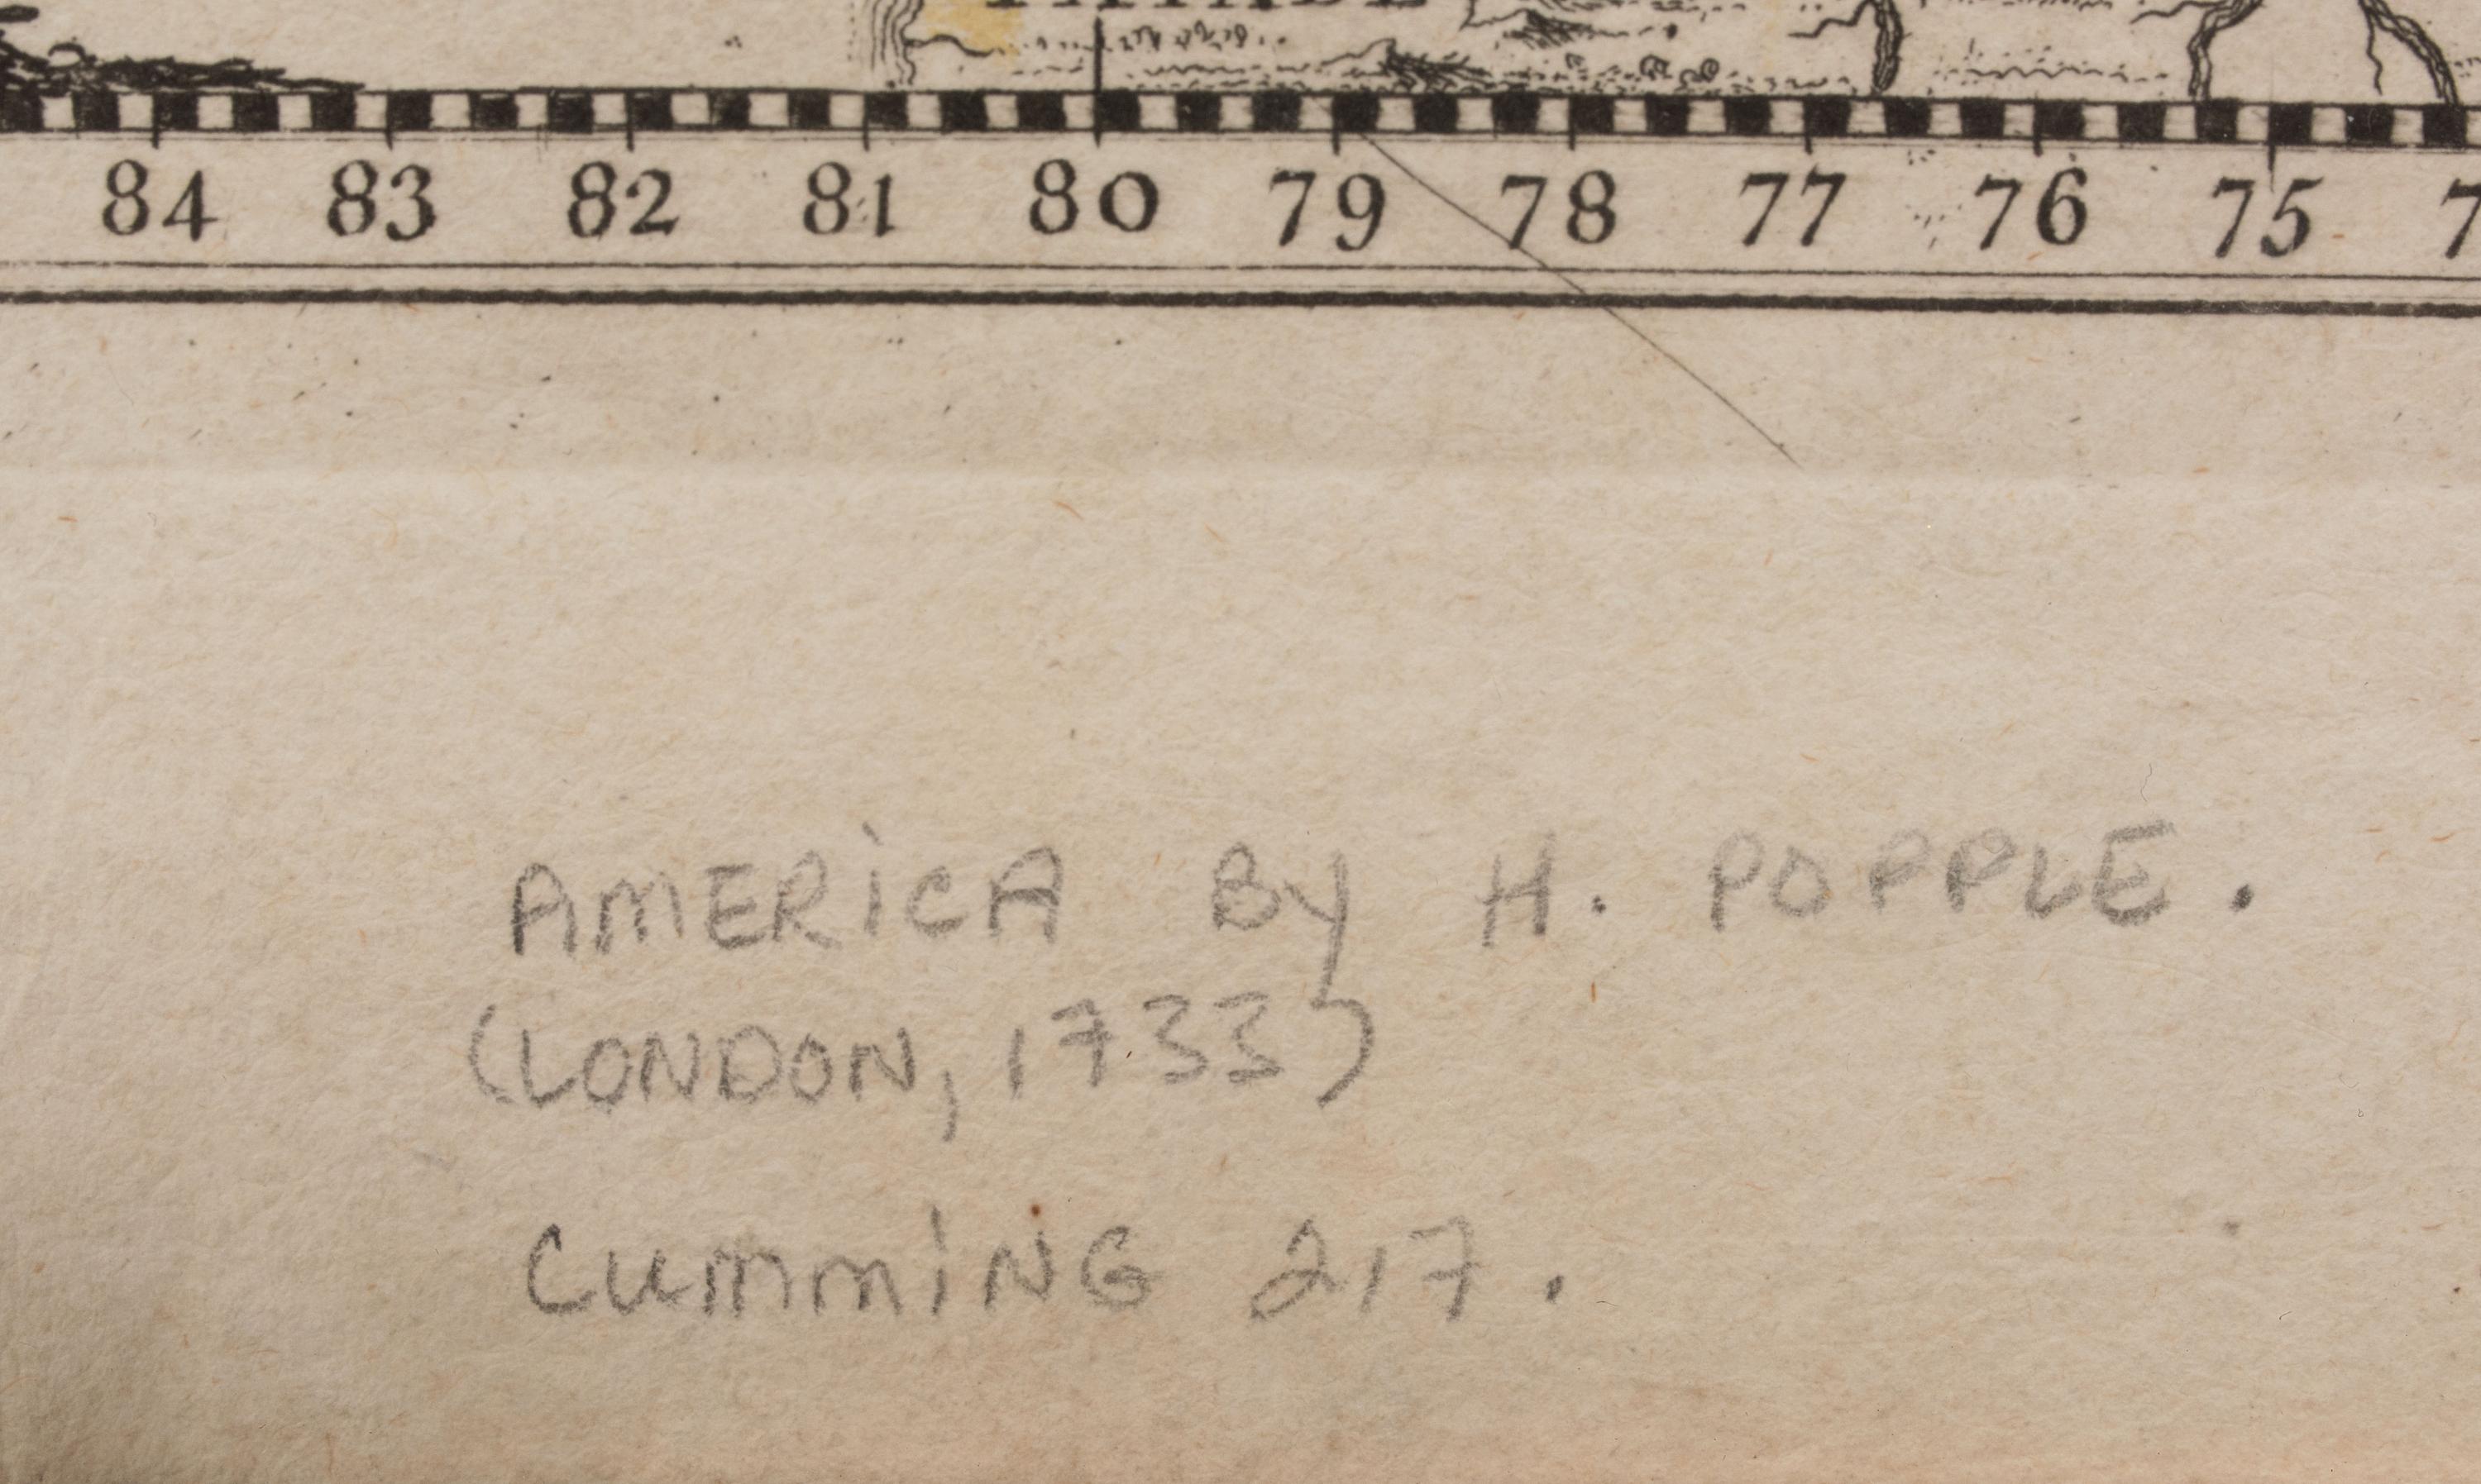 84 83 82 81 80 79 78 77 76 75 7
AMERiCA By H. POPPLE.
(LONDON, 1733)
CummiNG 217.